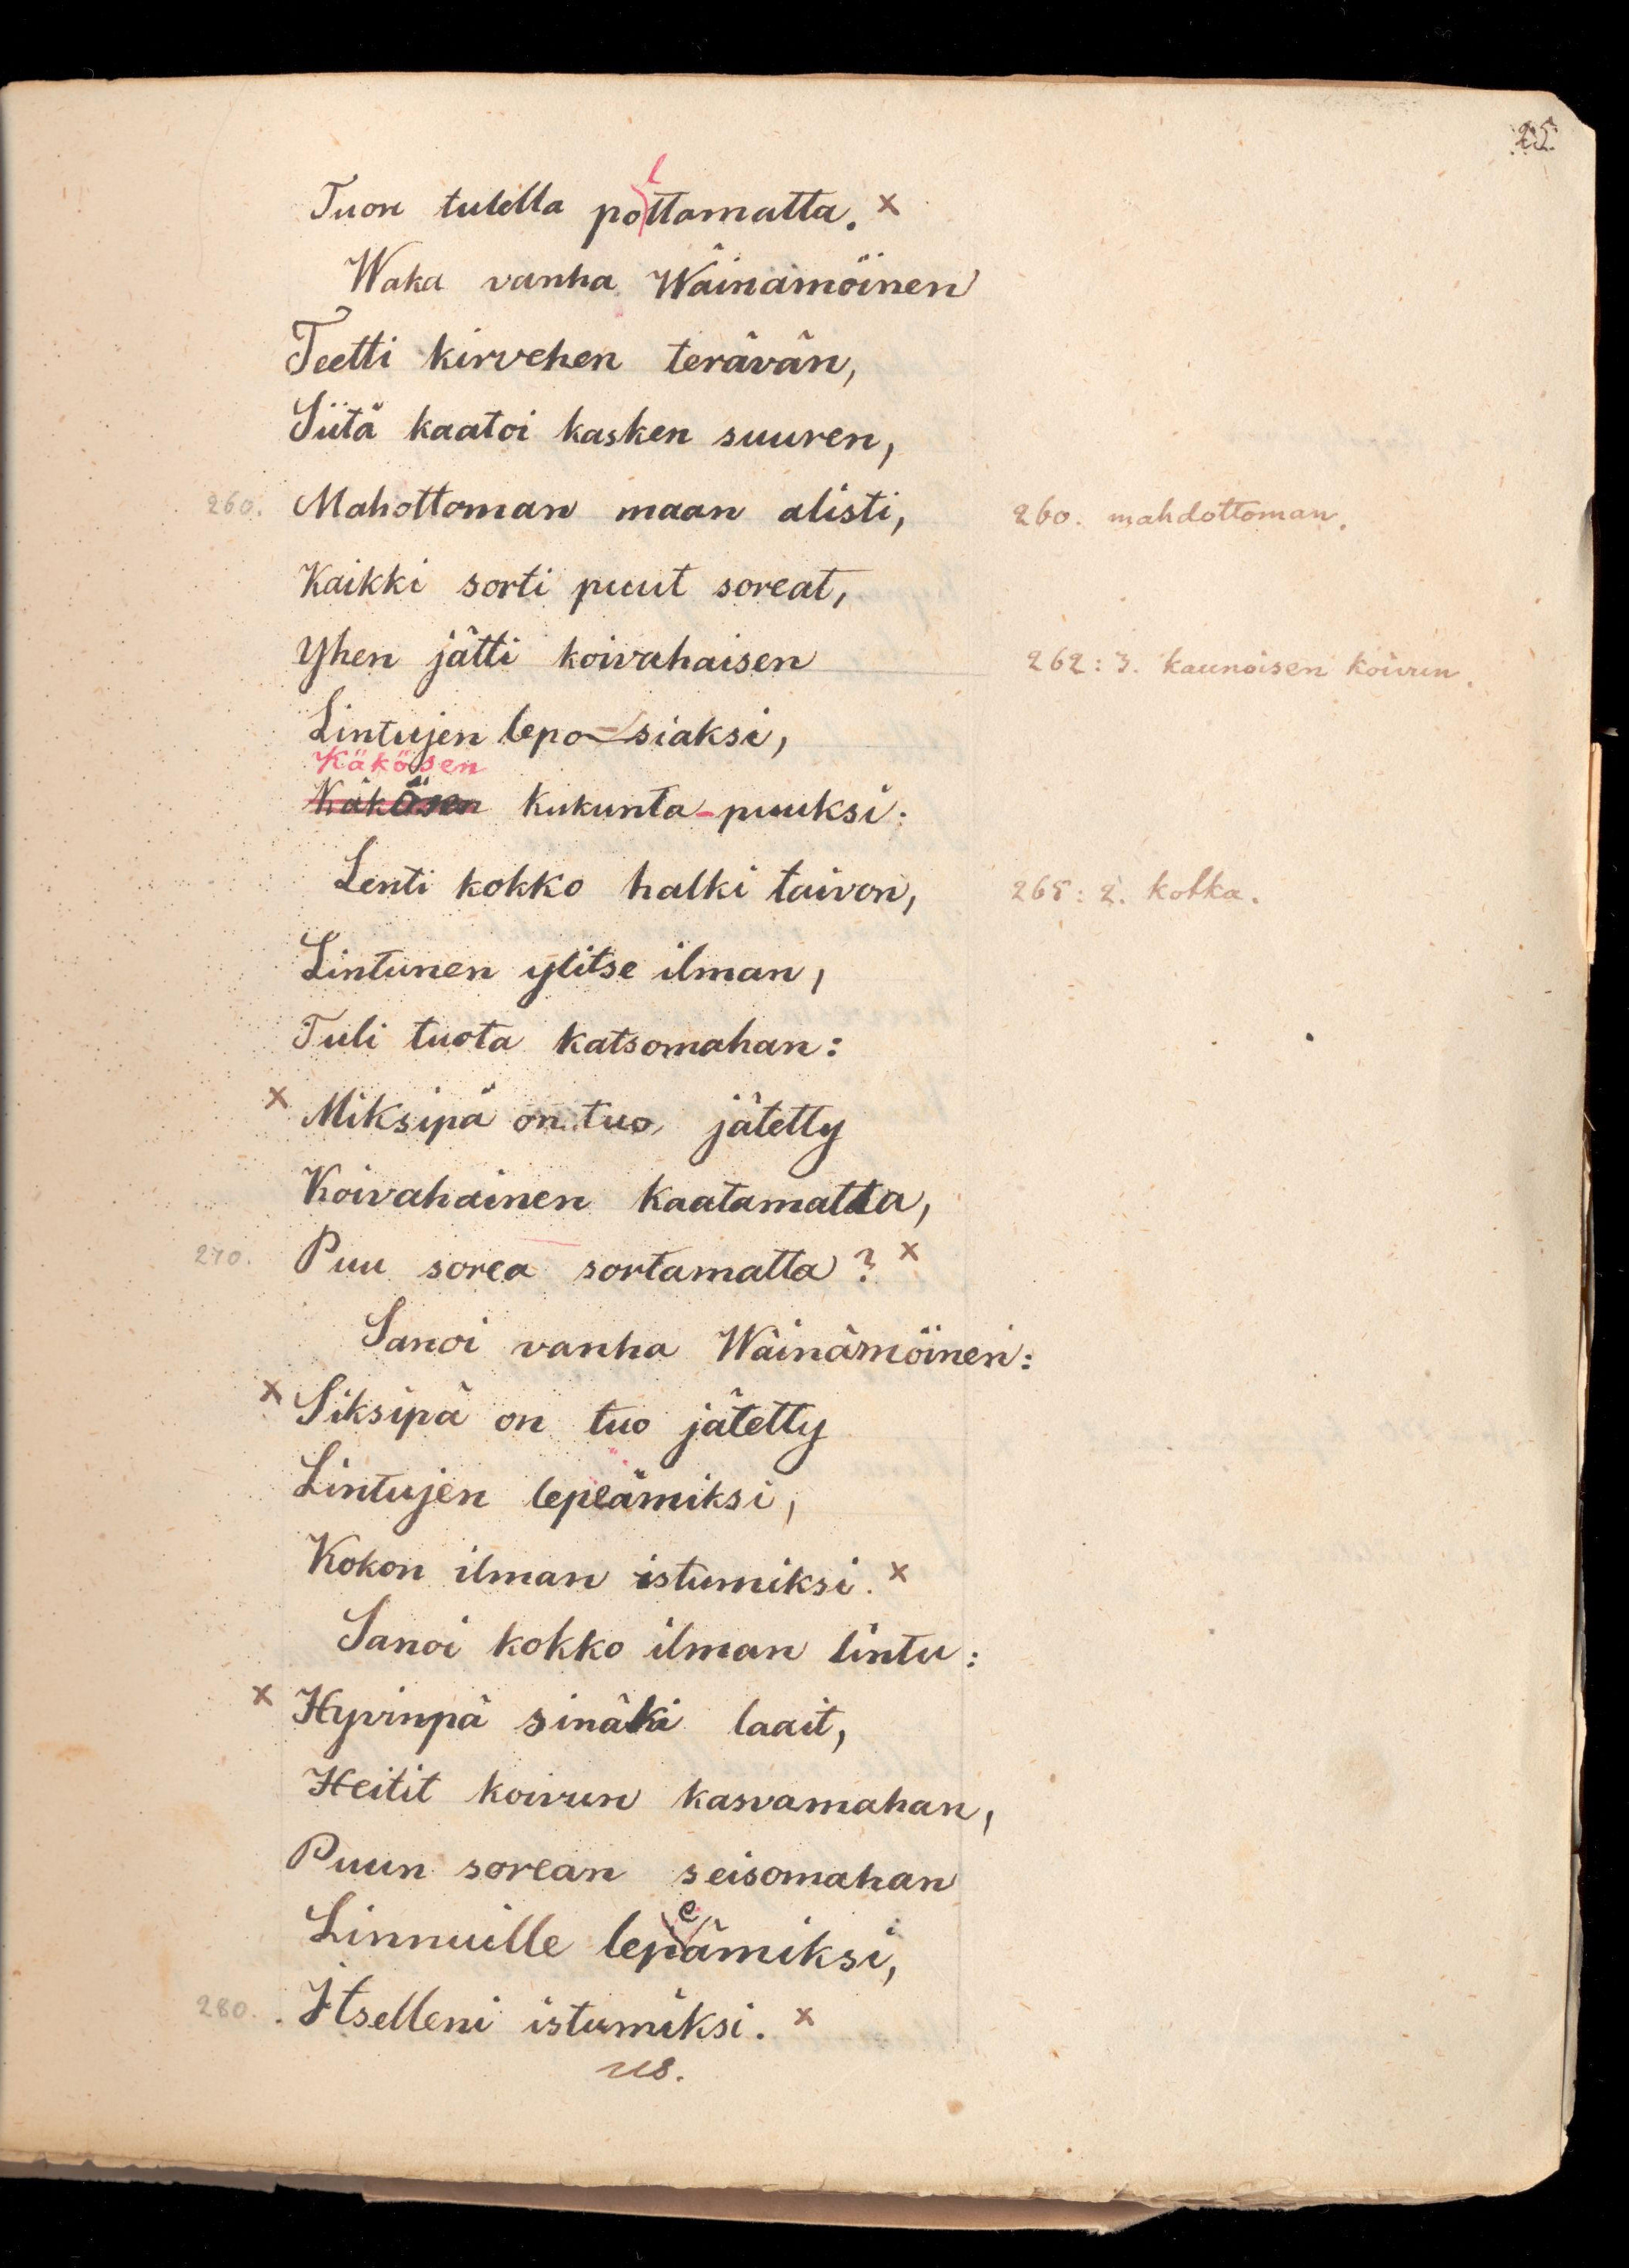 25.
Tuon tulella polttamatta. x
Waka vanha Wäinämöinen
Teetti kirvehen terävän,
Siitä kaatoi kasken suuren,
260. Mahottoman maan alisti, 260. mahdottoman.
Kaikki sorti puut soreat,
Yhen jätti koivahaisen 262: 3. kaunoisen koivun.
Lintujen lepo-siaksi,
Käkösen
Käkösen kukunta-puuksi:
Lenti kokko halki taivon, 265: 2. kotka.
Lintunen ylitse ilman,
Tuli tuota katsomahan:
x Miksipä on tuo jätetty
Koivahainen kaatamatta,
270. Puu sorea sortamatta? x
Sanoi vanha Wäinämöinen:
x Siksipä on tuo jätetty
Lintujen lepeämiksi,
Kokon ilman istumiksi. x
Sanoi kokko ilman lintu:
x Hyvinpä sinäki laait,
Heitit koivun kasvamahan,
Puun sorean seisomahan
Linnuille lepeämiksi,
280. Itselleni istumiksi. x